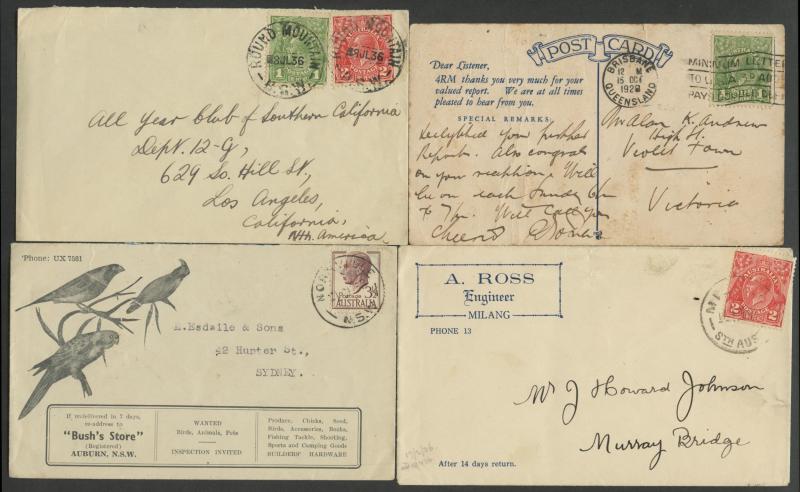 ROUND MOUNTAIN
N.S.W.
JUL 36
1
2
All Year Club of Southern California
Dept. 12-G,
629 So. Hill St.,
Los Angeles,
California,
Nth. America
POST CARD
Dear Listener,
4RM thanks you very much for your
valued report. We are at all times
pleased to hear from you.
SPECIAL REMARKS:
your
Reports. Also congrats
on your reception. Will
be on each Sunday
to 7
Cheerio
BRISBANE
12 M
15 OC
1928
QUEENSLAND
MINIMUM LETTER
TO U.S.A.
Mr Alan K. Andrew
High St.
Violet Town
Victoria
Phone: UX 7581
Postage
3½d
AUSTRALIA
N.S.W.
Esdaile & Sons
42 Hunter St.,
SYDNEY.
If undelivered in 7 days,
re-address to
"Bush's Store"
(Registered)
AUBURN, N.S.W.
WANTED
Birds, Animals, Pets
INSPECTION INVITED
Produce, Chicks, Seed,
Birds, Accessories, Books,
Fishing Tackle, Shooting,
Sports and Camping Goods
BUILDERS' HARDWARE
A. ROSS
Engineer
MILANG
PHONE 13
AUSTRALIA
2
STH AUS
Mr J Howard Johnson
Murray Bridge
After 14 days return.